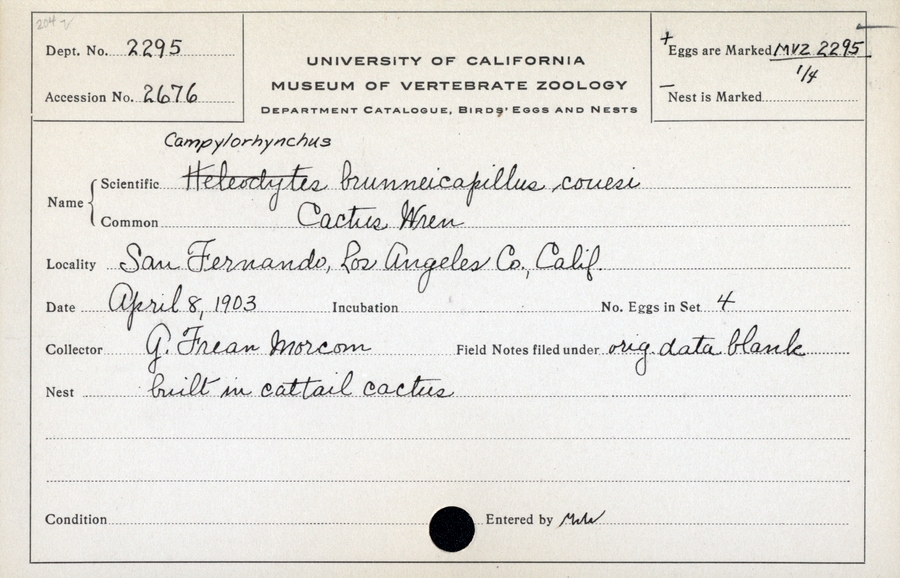 204
Dept. No. 2295
Accession No. 2676
UNIVERSITY OF CALIFORNIA
MUSEUM OF VERTEBRATE ZOOLOGY
DEPARTMENT CATALOGUE, BIRDS' EGGS AND NESTS
+ Eggs are Marked MVZ 2295
1/4
— Nest is Marked
Campylorhynchus
Name { Scientific Heleodytes brunneicapillus couesi
Common Cactus Wren
Locality San Fernando, Los Angeles Co., Calif.
Date April 8, 1903 Incubation No. Eggs in Set 4
Collector G. Frean Morcom Field Notes filed under orig. data blank
Nest built in cattail cactus
Condition Entered by